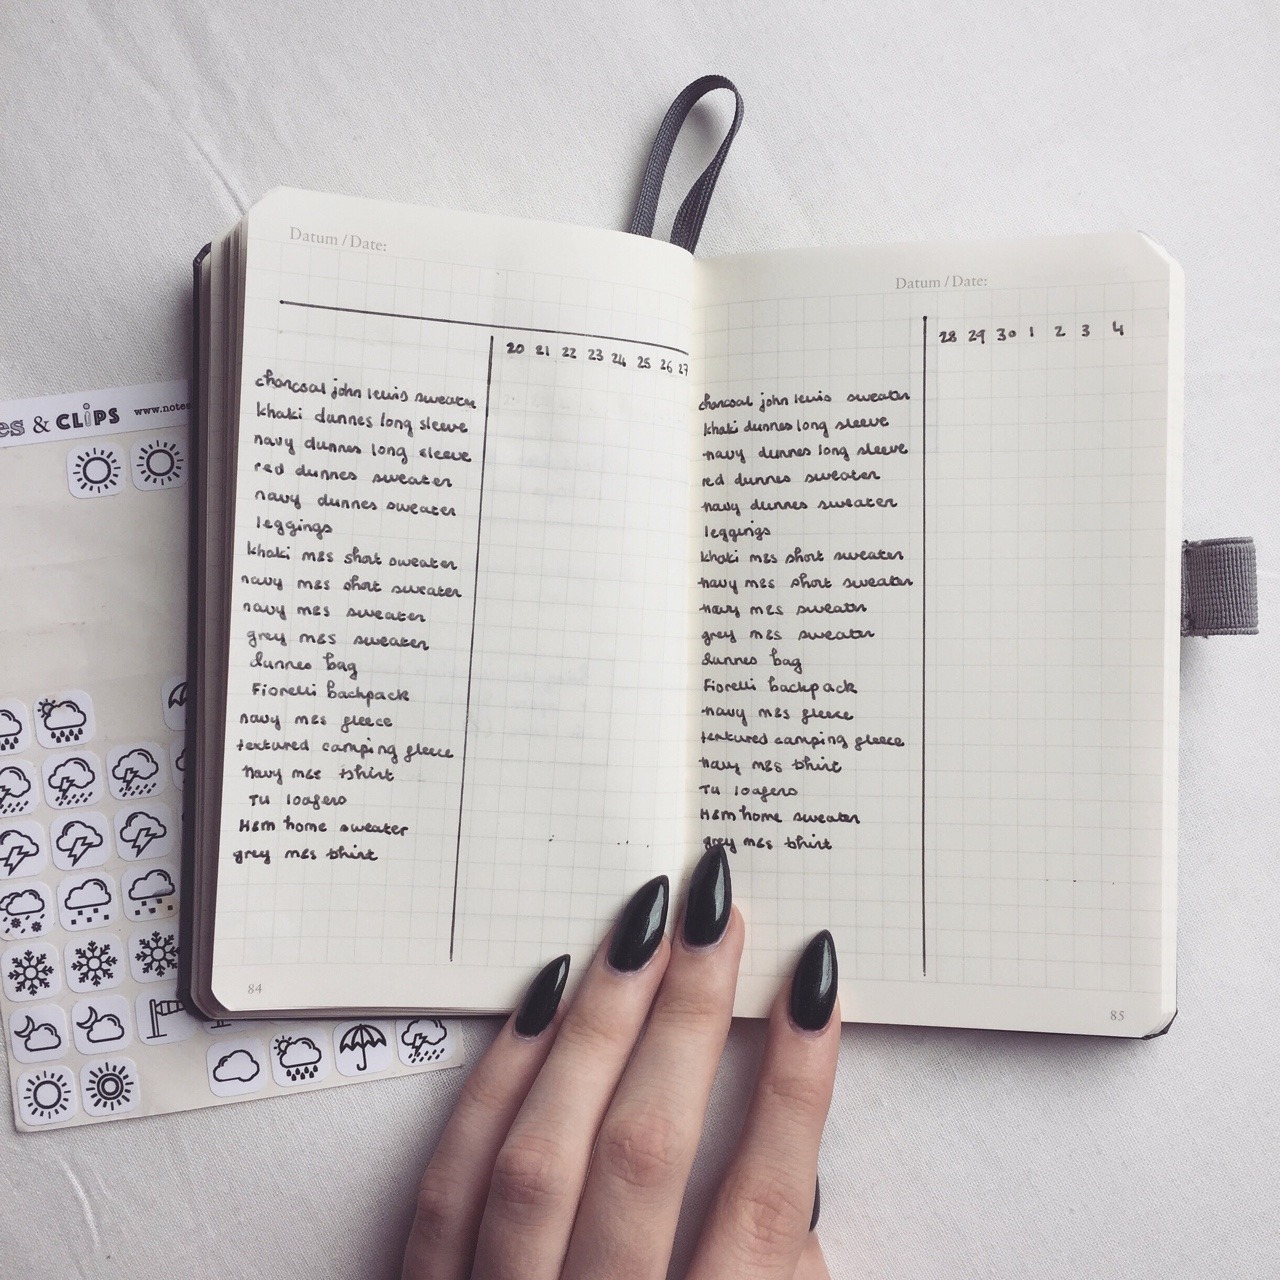 es & CLiPS www.notes
Datum / Date:
20 21 22 23 24 25 26 27
charcoal john lewis sweater
khaki dunnes long sleeve
navy dunnes long sleeve
red dunnes sweater
navy dunnes sweater
leggings
khaki m&s short sweater
navy m&s short sweater
navy m&s sweater
grey m&s sweater
dunnes bag
Fiorelli backpack
navy m&s fleece
textured camping fleece
navy m&s tshirt
TU loafers
H&m home sweater
grey m&s tshirt
84
Datum / Date:
28 29 30 1 2 3 4
charcoal john lewis sweater
khaki dunnes long sleeve
navy dunnes long sleeve
red dunnes sweater
navy dunnes sweater
leggings
khaki m&s short sweater
navy m&s short sweater
navy m&s sweater
grey m&s sweater
dunnes bag
Fiorelli backpack
navy m&s fleece
textured camping fleece
navy m&s tshirt
TU loafers
H&m home sweater
grey m&s tshirt
85